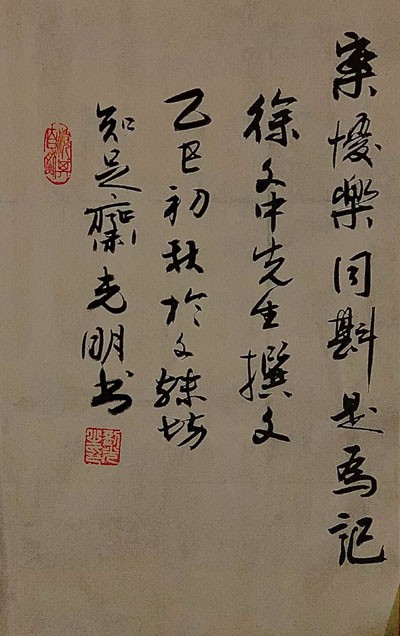 懮樂同斟是為記
徐文中先生撰文
乙巳初秋於文坊
知足齋克明书